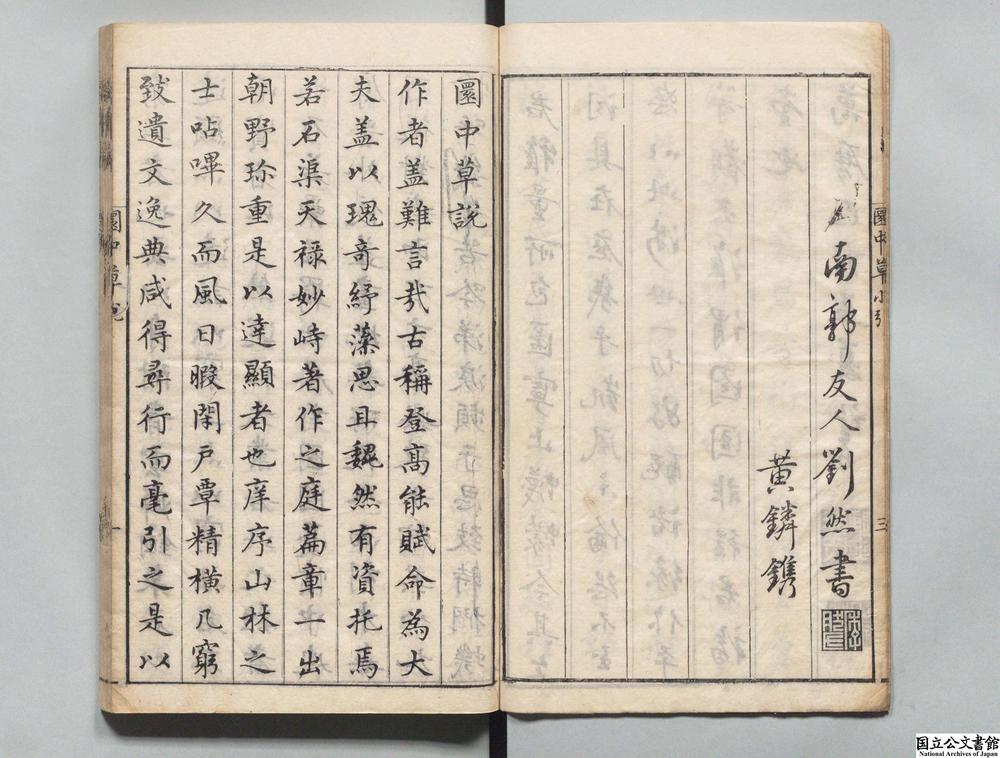 南郭友人劉然書
黃鏻鐫
圜中草小引
三
圜中草說
作者盖難言哉古稱登高能賦命為大
夫盖以瑰奇紓藻思耳魏然有資托焉
若石渠天祿妙峙著作之庭篇章一出
朝野珎重是以達顯者也庠序山林之
士呫嗶久而風日暇閑戶覃精橫几窮
致遺文逸典咸得尋行而毫引之是以
圜中草
一
国立公文書館
National Archives of Japan